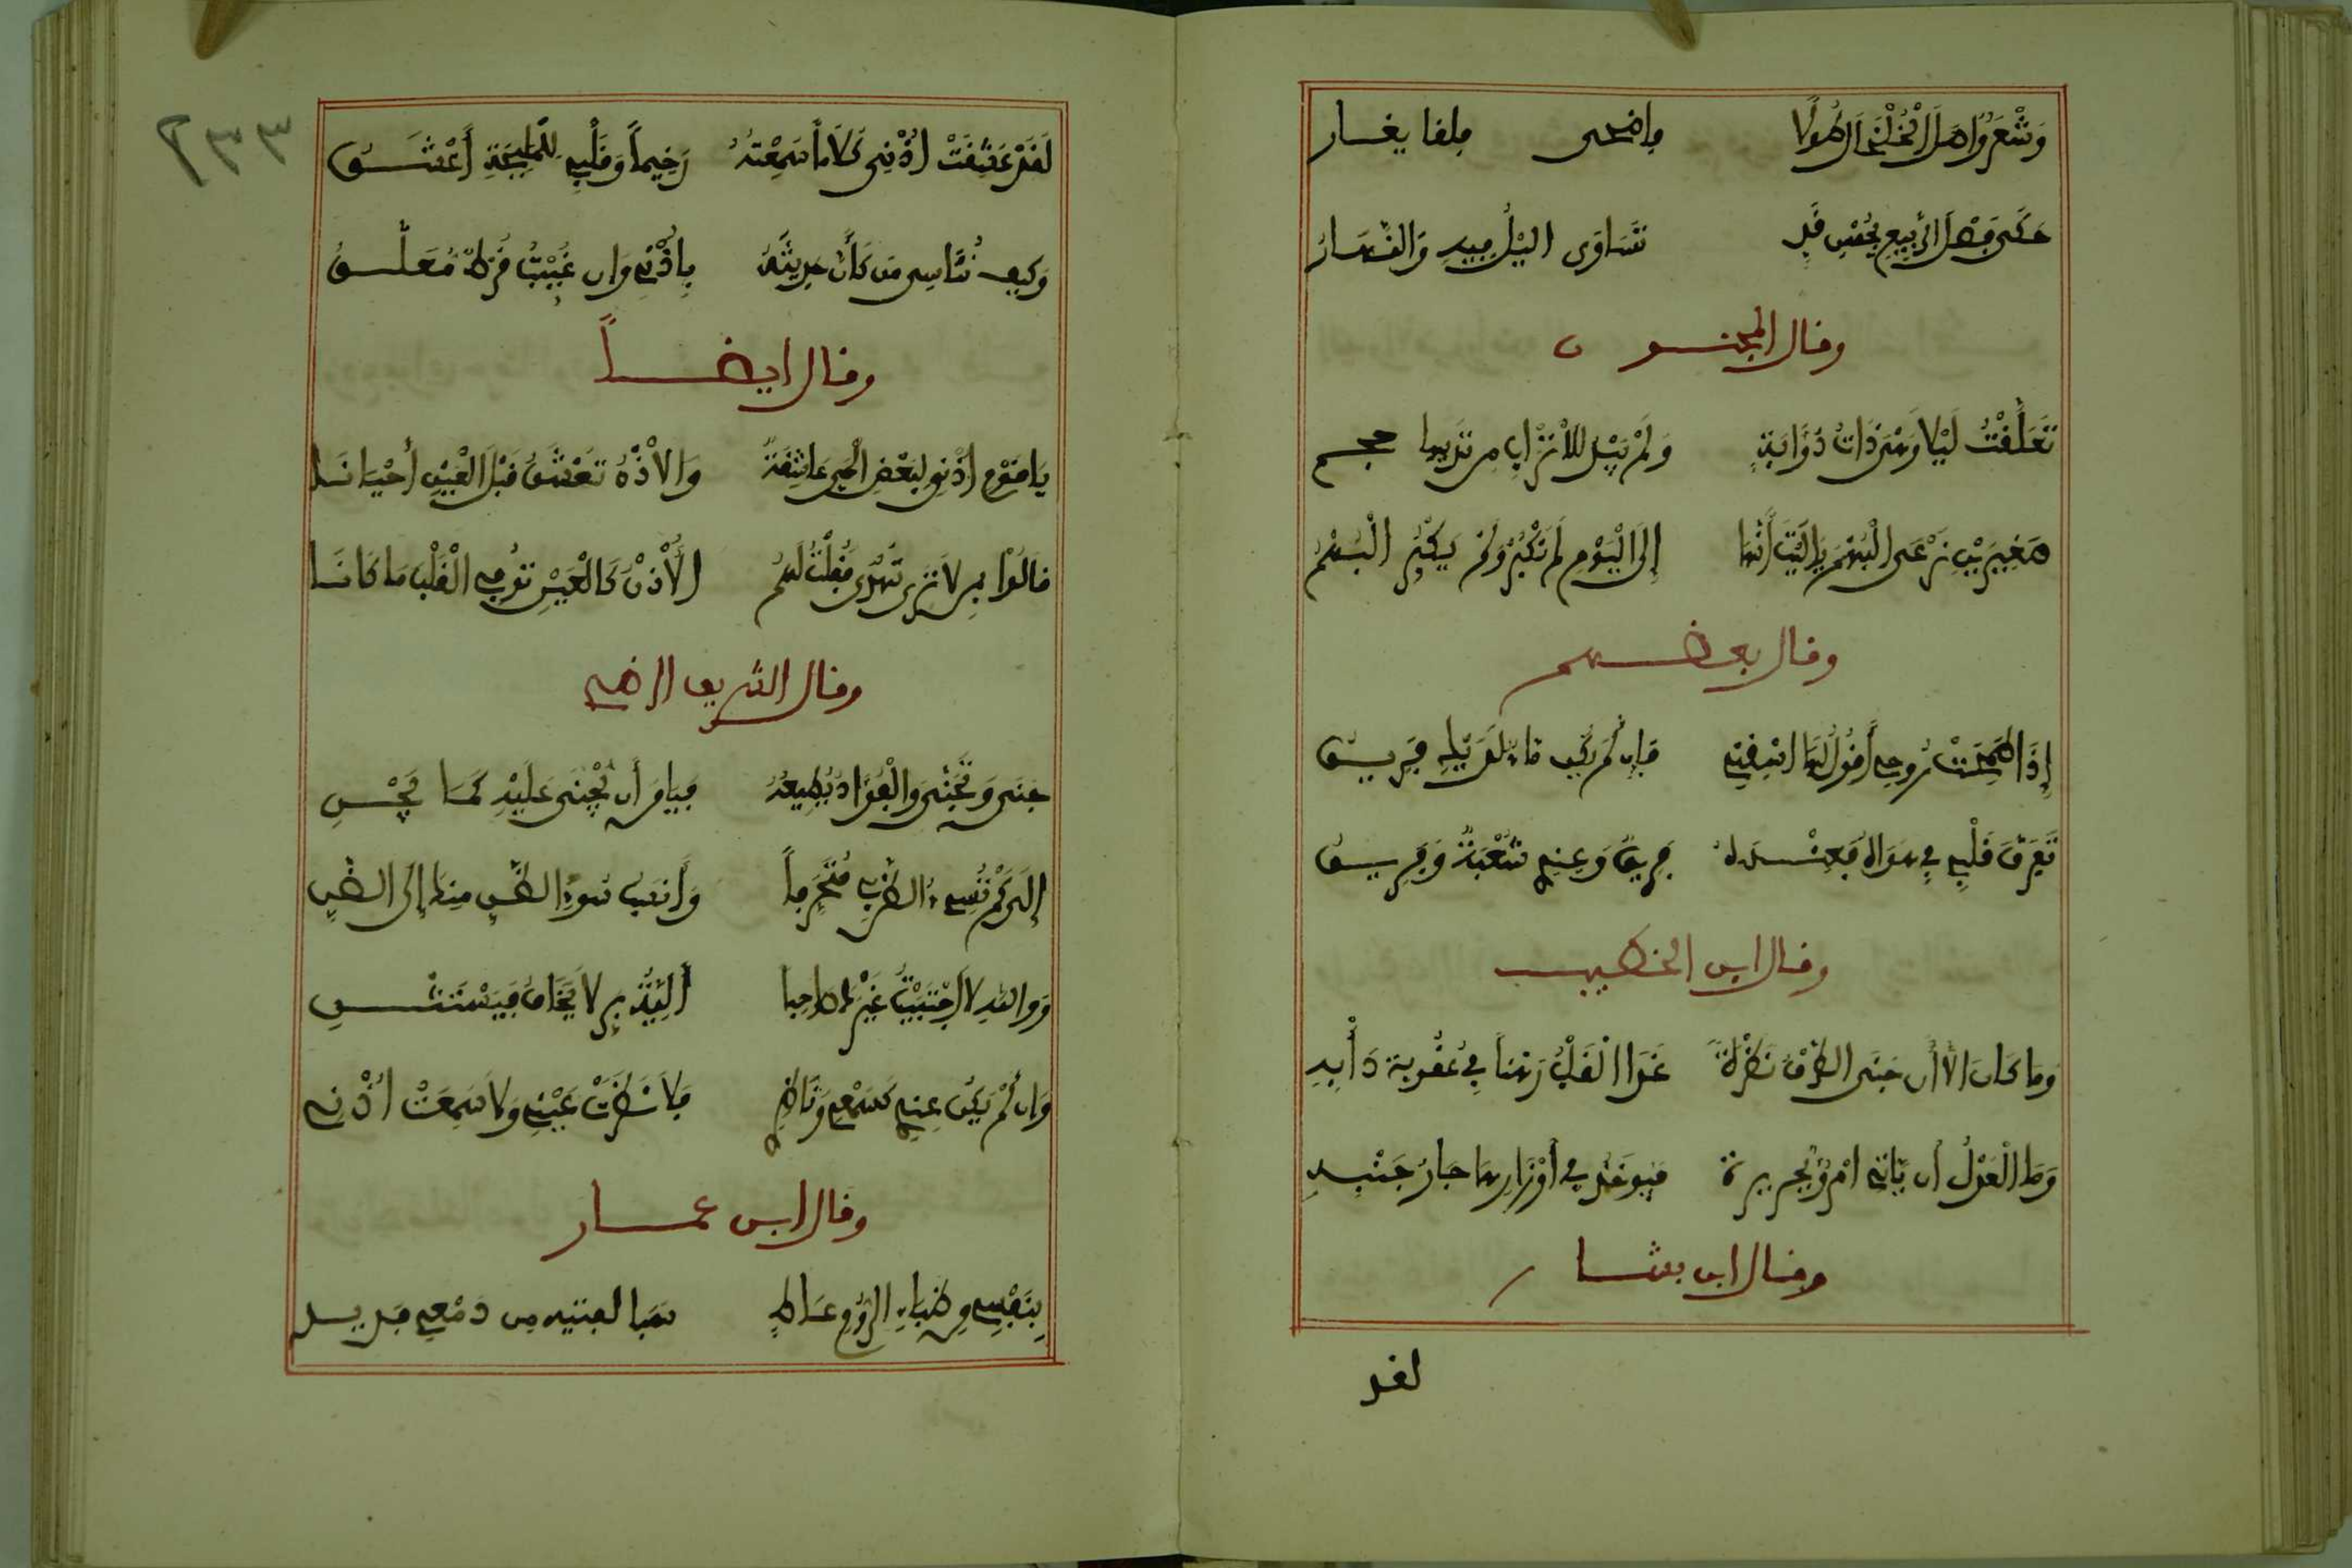 وشعر واصل الخلخال طولا فاضحى قلقا يغار
حكى فصل الربيع بحسن قد تساوى اليل فيه والنهار
وقال المجنون
تعلقت ليلا وهي ذات ذؤابة ولم يبد للاتراب من ثديها حجم
صغيرين نرعى البهم يا ليت أننا إلى اليوم لم نكبر ولم يكبر البهم
وقال بعضهم
إذا طمحت روحي أقول لها اسفني فإن لم يكن
تفرق قلبي في هواه فعنده فريق وعندي شعبة وفريق
وقال ابن الخطيب
وما كان الا أن جنى الطرف نظرة غدا القلب رهنا في عقوبة ذأبه
وما العدل أن ياتي امرؤ بجريرة فيوخذ في أوزارها جار جنبه
وقال ابن بشار
لقد
٢٣٣
لقد عشقت اذني كلاما سمعته رخيما وقلبي للمليحة أعشق
وكيف تناسي من كأن حديثه بأذني وان غيبت قرط معلق
وقال ايضاً
يا قوم اذني لبعض الحي عاشقة والاذن تعشق قبل العين أحيانا
قالوا بمن لا ترى تهوى فقلت لهم الأذن كالعين توفي القلب ما كانا
وقال الشريف الرضي
جنى وتجنى والفؤاد يطيعه فيا من أن يجنى عليه كما يجني
إلى كم تسيء الظن بي متجرما وأنسب سوء الظن منك إلى الظن
ووالله لا احببت غيرك واحبا ألية بر لا يخاف فيستثني
وان لم يكن عندي كسمعي وناظري فلا نظرت عيني ولا سمعت اذني
وقال ابن عمار
بنفسي من ظباء الروم عاط دمعي فريد